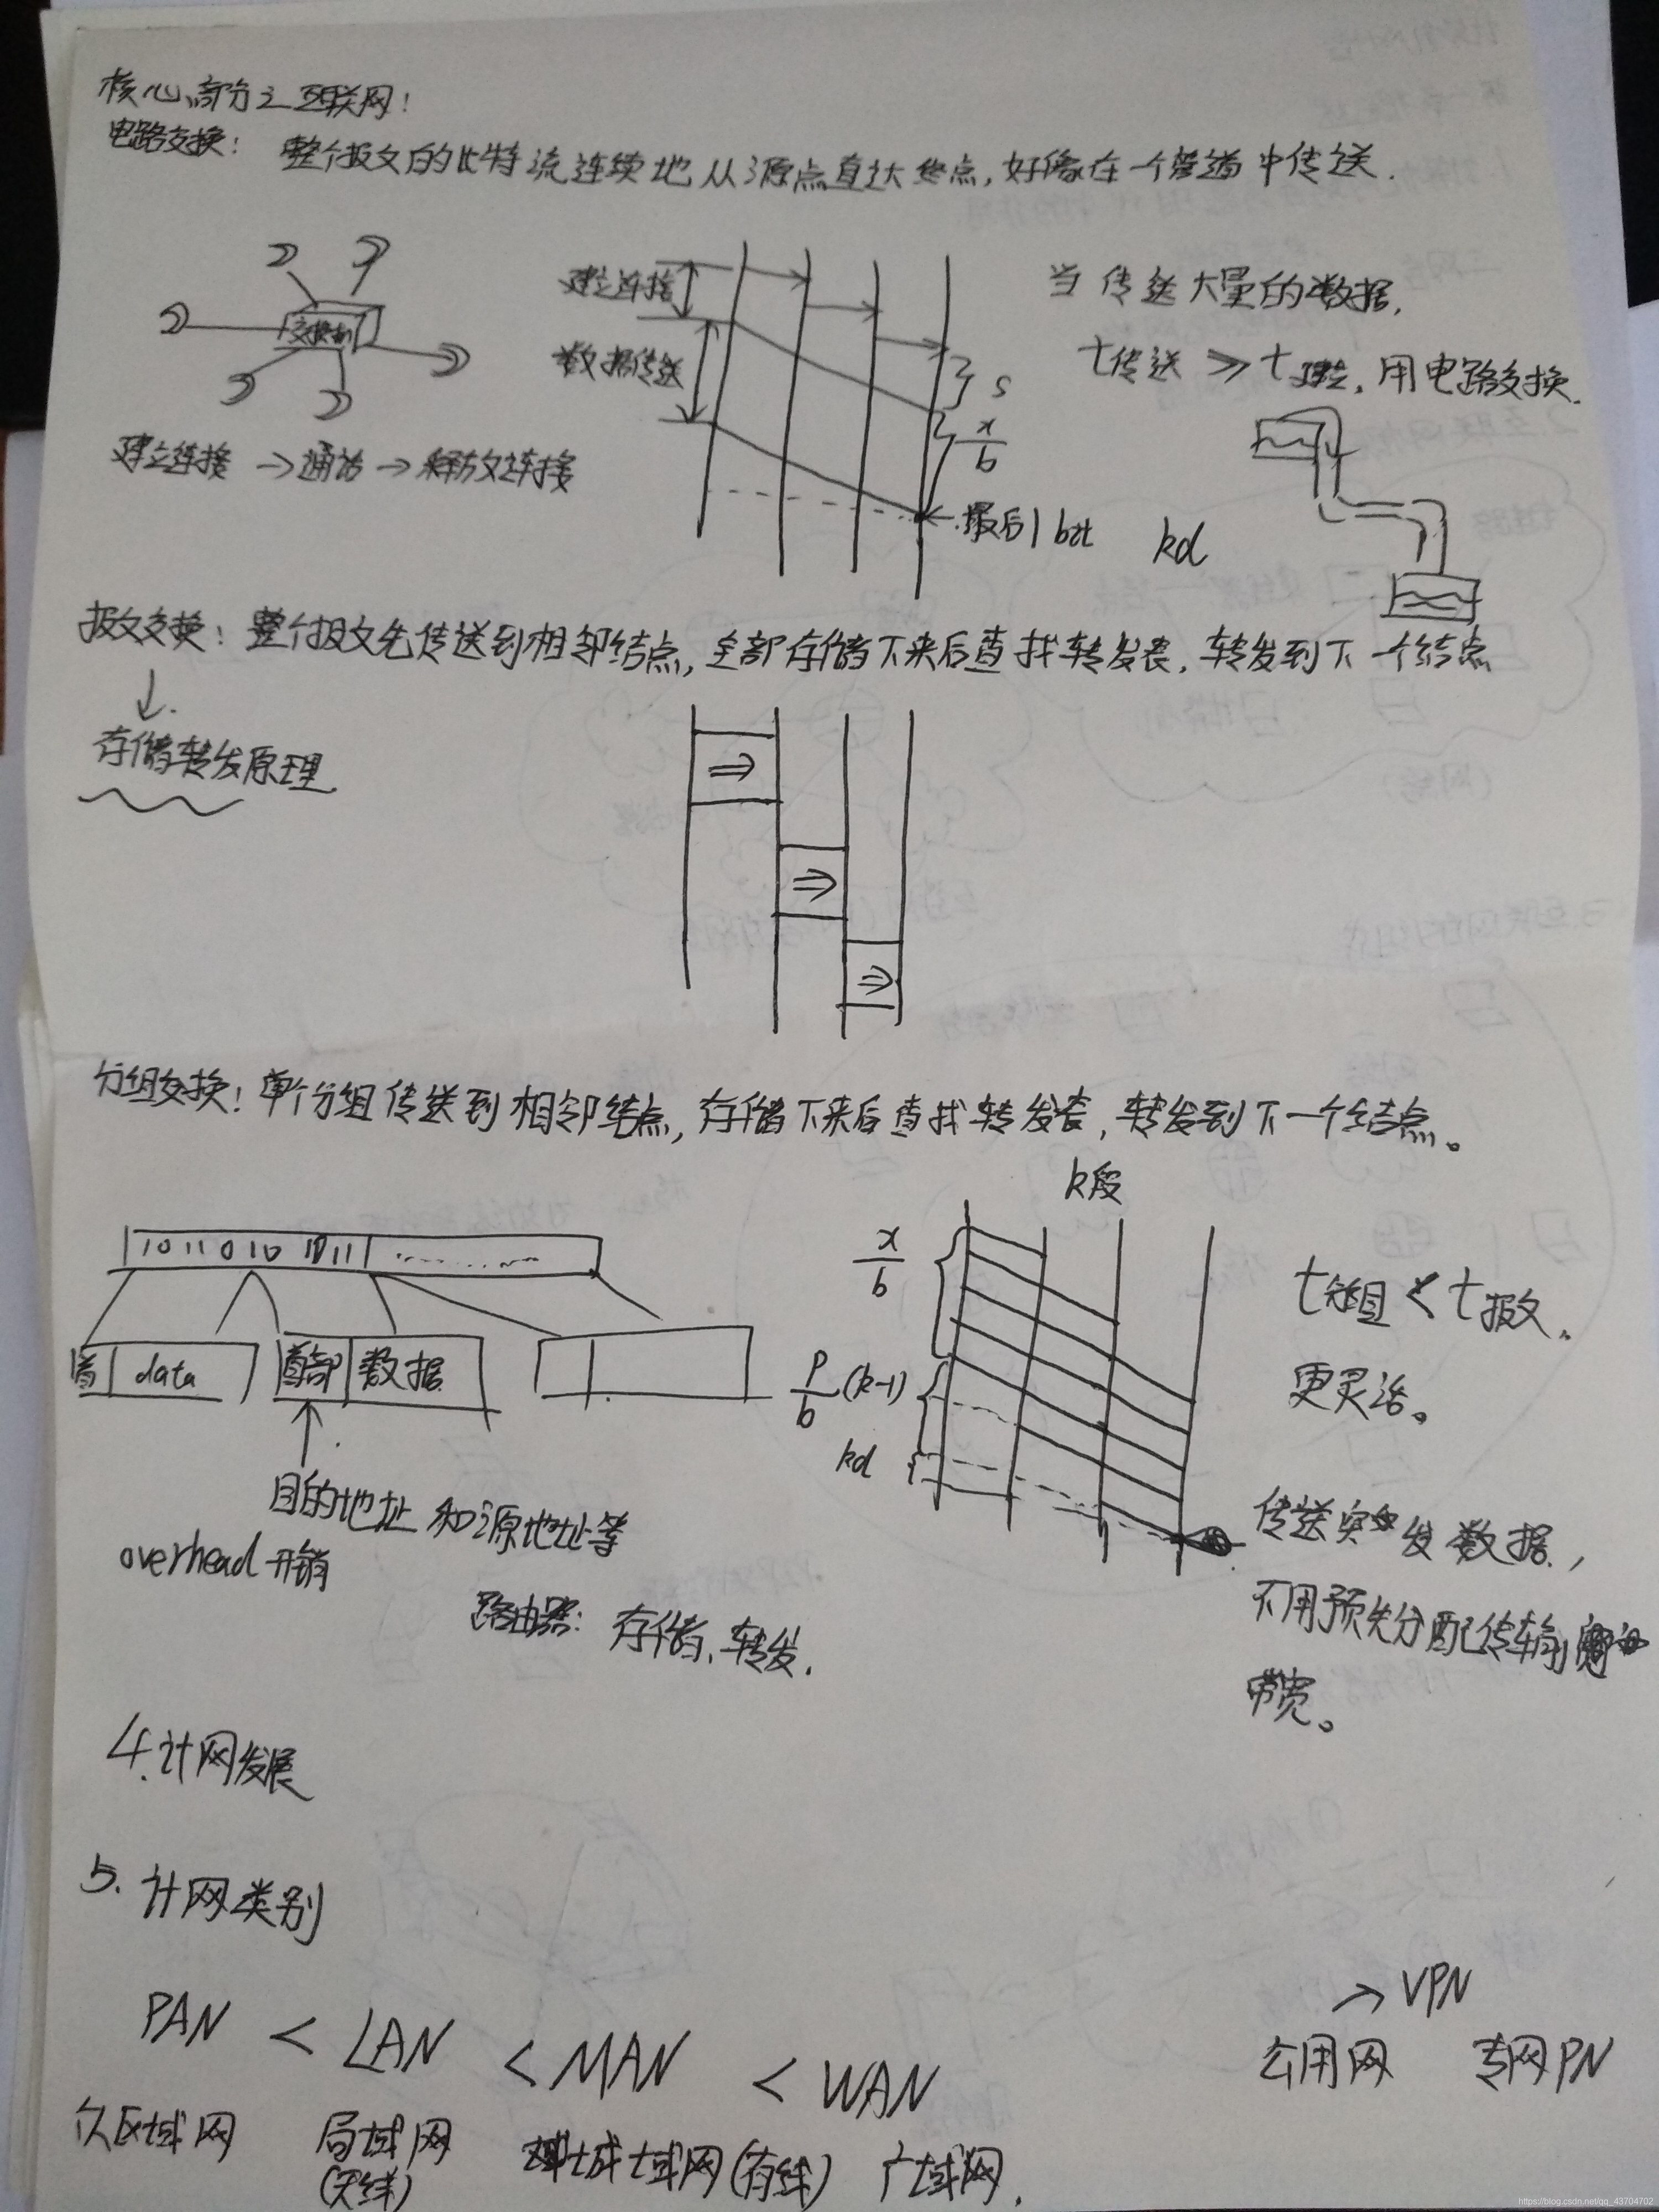 核心部分之互联网:
电路交换: 整个报文的比特流连续地从源点直达终点,好像在一个管道中传送.
交换机
建立连接 → 通话 → 释放连接
建立连接
数据传送
s
x/b
最后1bit
kd
当传送大量的数据,
t传送 >> t建立,用电路交换.
报文交换: 整个报文先传送到相邻结点,全部存储下来后查找转发表,转发到下一个结点
↓
存储转发原理
⇒
⇒
⇒
分组交换: 单个分组传送到相邻结点,存储下来后查找转发表,转发到下一个结点。
1011010 1011 ..........
首 data
首部 数据
目的地址和源地址等
overhead 开销
路由器: 存储、转发.
k段
x/b
P/b (k-1)
kd
t分组 < t报文,
更灵活。
传送突发数据,
不用预先分配传输
带宽。
4.计网发展
5.计网类别
PAN < LAN < MAN < WAN
个人区域网 局域网 城域网(有线) 广域网.
→ VPN
公用网 专网PN
https://blog.csdn.net/qq_43704702